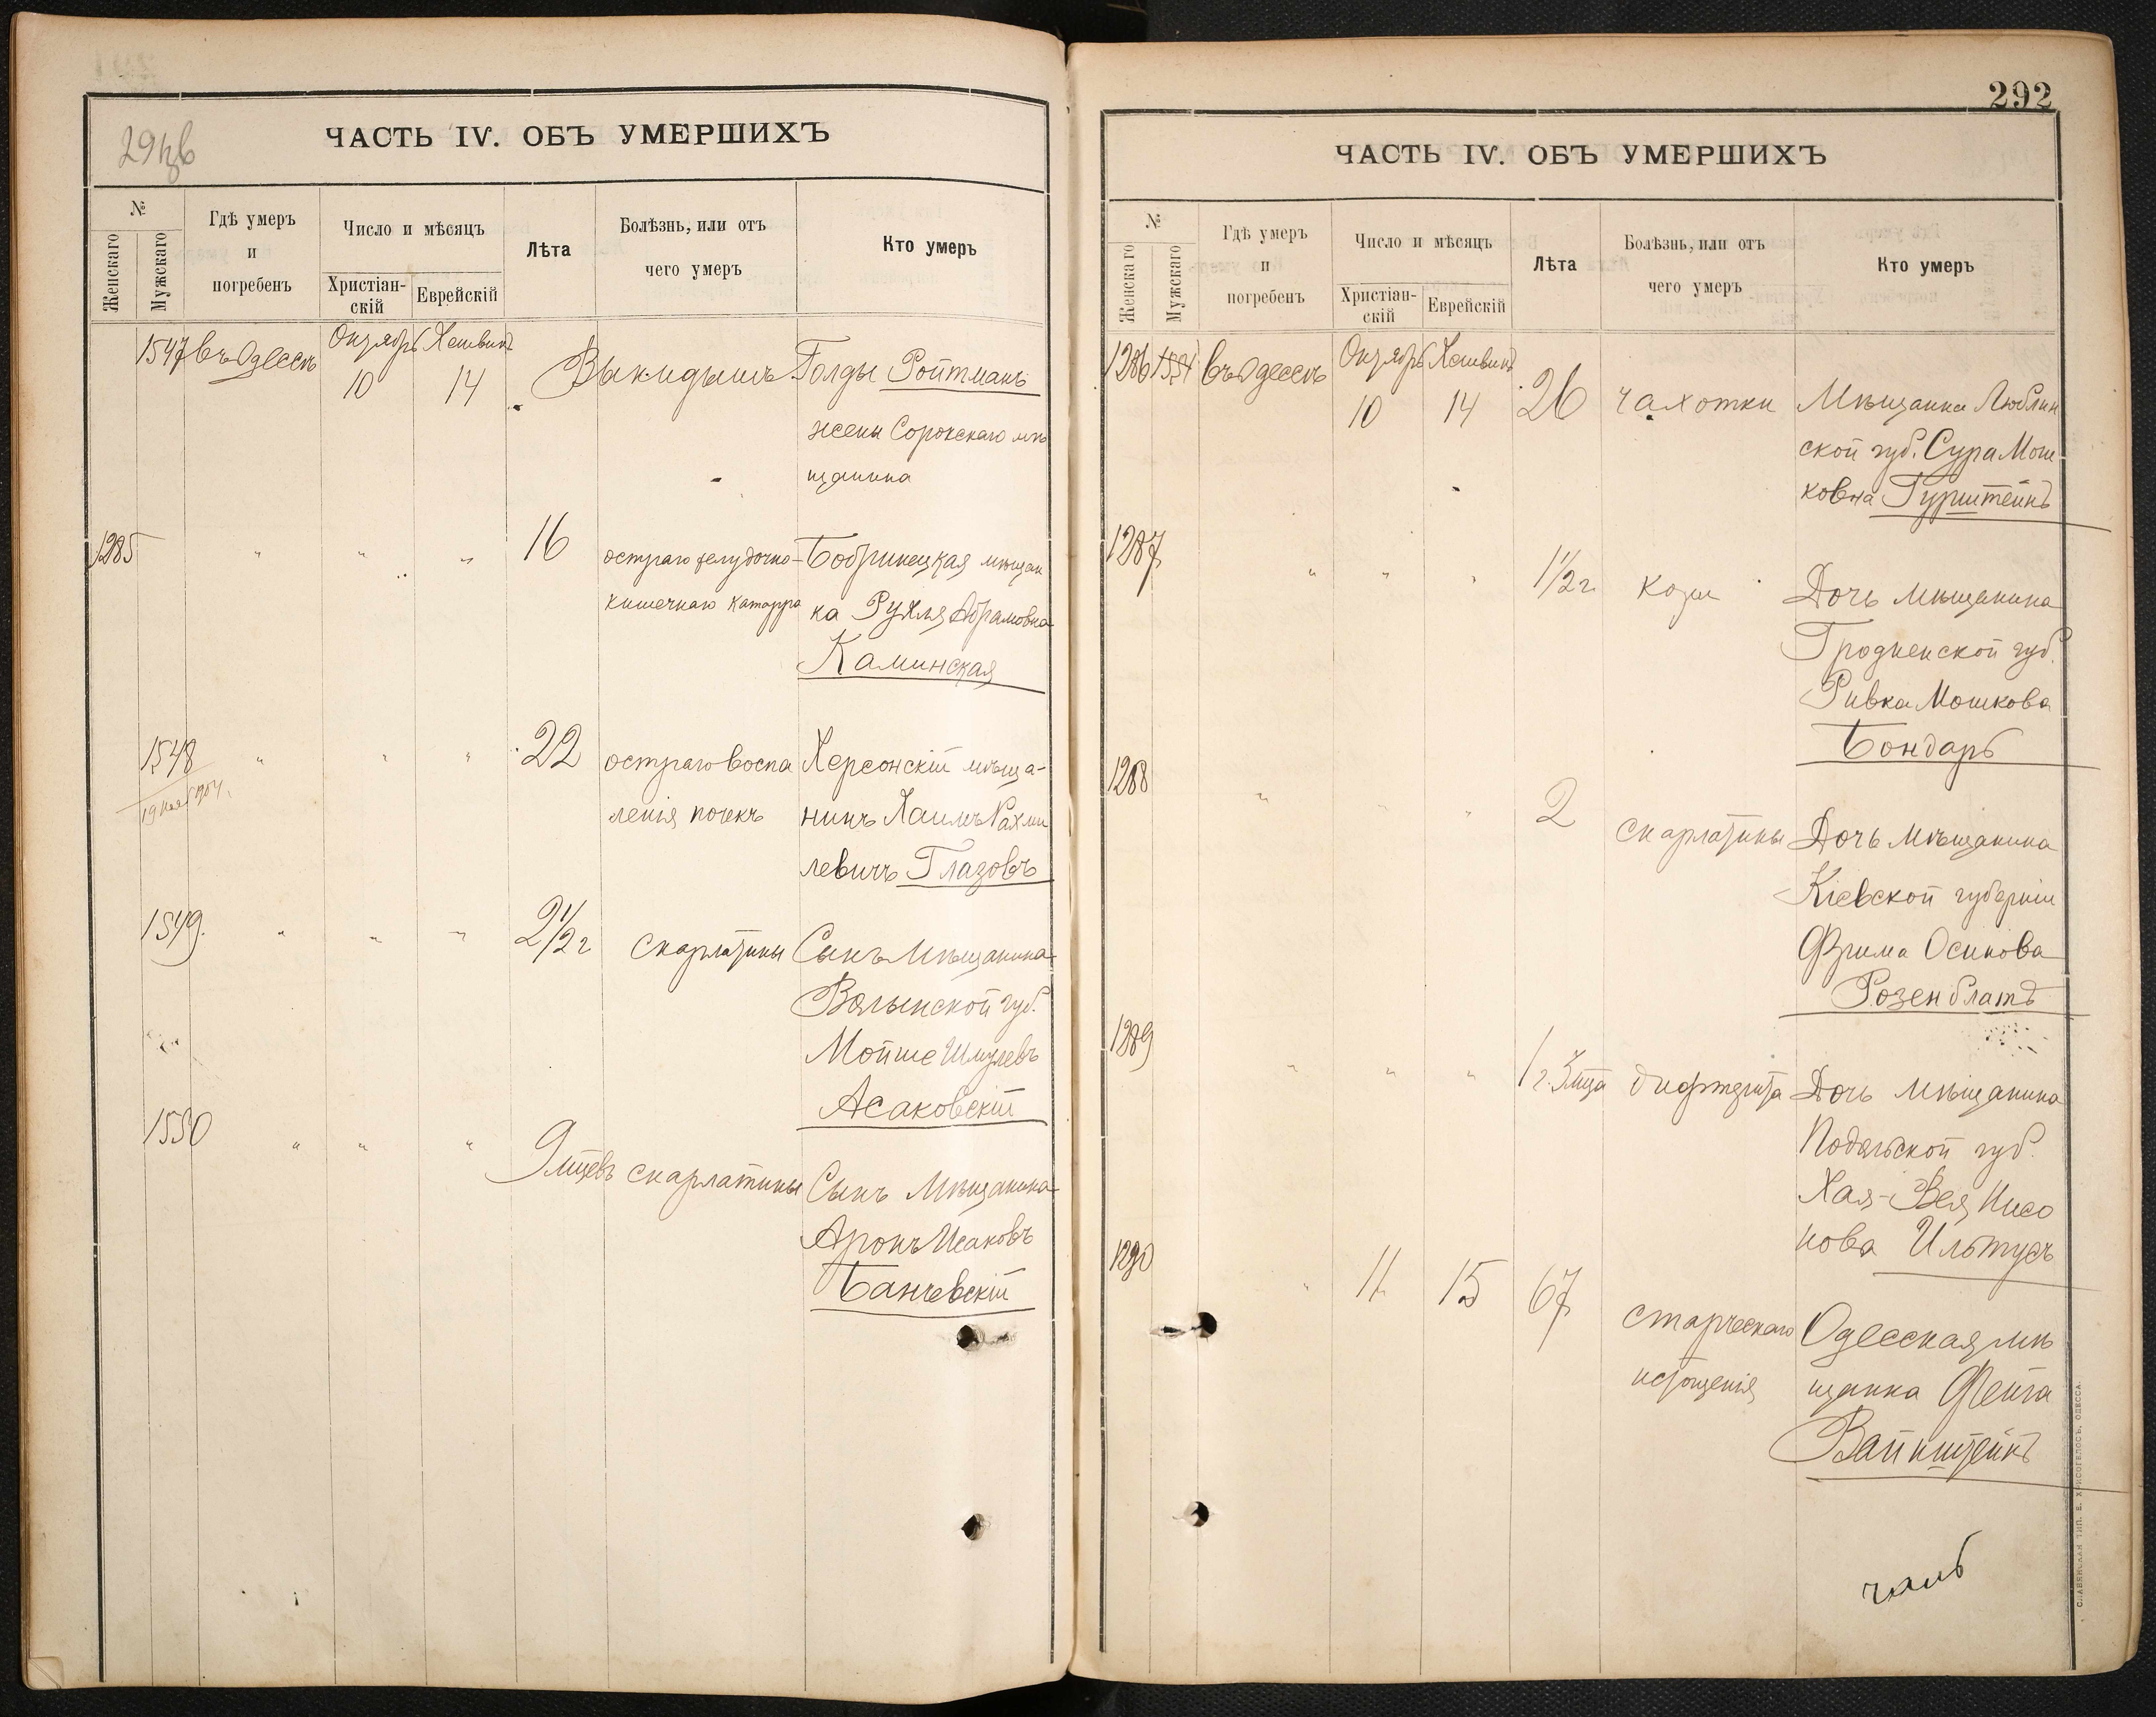 ЧАСТЬ IV. ОБЪ УМЕРШИХЪ
№
Женскаго
Мужскаго
Гдѣ умеръ
и
погребенъ
Число и мѣсяцъ
Христіан-
скій
Еврейскій
Лѣта
Болѣзнь, или отъ
чего умеръ
Кто умеръ
1547 въ Одессѣ Октябрь Хешвинъ Выкидышъ Голды Ройтманъ
10 14
жены Сорокскаго мѣ
щанина
1285 " " " 16 остраго желудочно- Бобринецкая мѣщан
кишечнаго катарра ка Рухля Абрамовна
Каминская
1548 " " " 22 остраго воспа Херсонскій мѣща-
ленія почекъ нинъ Хаимъ Рахми
левичъ Глазовъ
1549. " " " 2 1/2 г скарлатины Сынъ мѣщанина
Волынской губ.
Мойше Шмулевъ
Асаковскій
1550 " " " 9 мцевъ скарлатины Сынъ мѣщанина
Аронъ Исаковъ
Банчевскій
292
ЧАСТЬ IV. ОБЪ УМЕРШИХЪ
№
Женскаго
Мужскаго
Гдѣ умеръ
и
погребенъ
Число и мѣсяцъ
Христіан-
скій
Еврейскій
Лѣта
Болѣзнь, или отъ
чего умеръ
Кто умеръ
1286 въ Одессѣ Октябрь Хешвинъ
10 14 26 чахотки Мѣщанка Люблин
ской губ. Сура Мош
ковна Гурштейнъ
1287 " " " 1 1/2 г. кори Дочь мѣщанина
Гродненской губ.
Ривка Мошкова
Бондарь
1288 " " " 2 скарлатины Дочь мѣщанина
Кіевской губерніи
Фрима Осипова
Розенблатъ
1289 " " " 1 г. 3 мца дифтерита Дочь мѣщанина
Подольской губ.
Хая-Бея Нисо
нова Ильтусъ
1290 " 11 15 67 старческаго Одесская мѣ
истощенія щанка Фейга
Вайнштейнъ
СЛАВЯНСКАЯ ТИП. Е. ХРИСОГЕЛОСЪ, ОДЕССА.